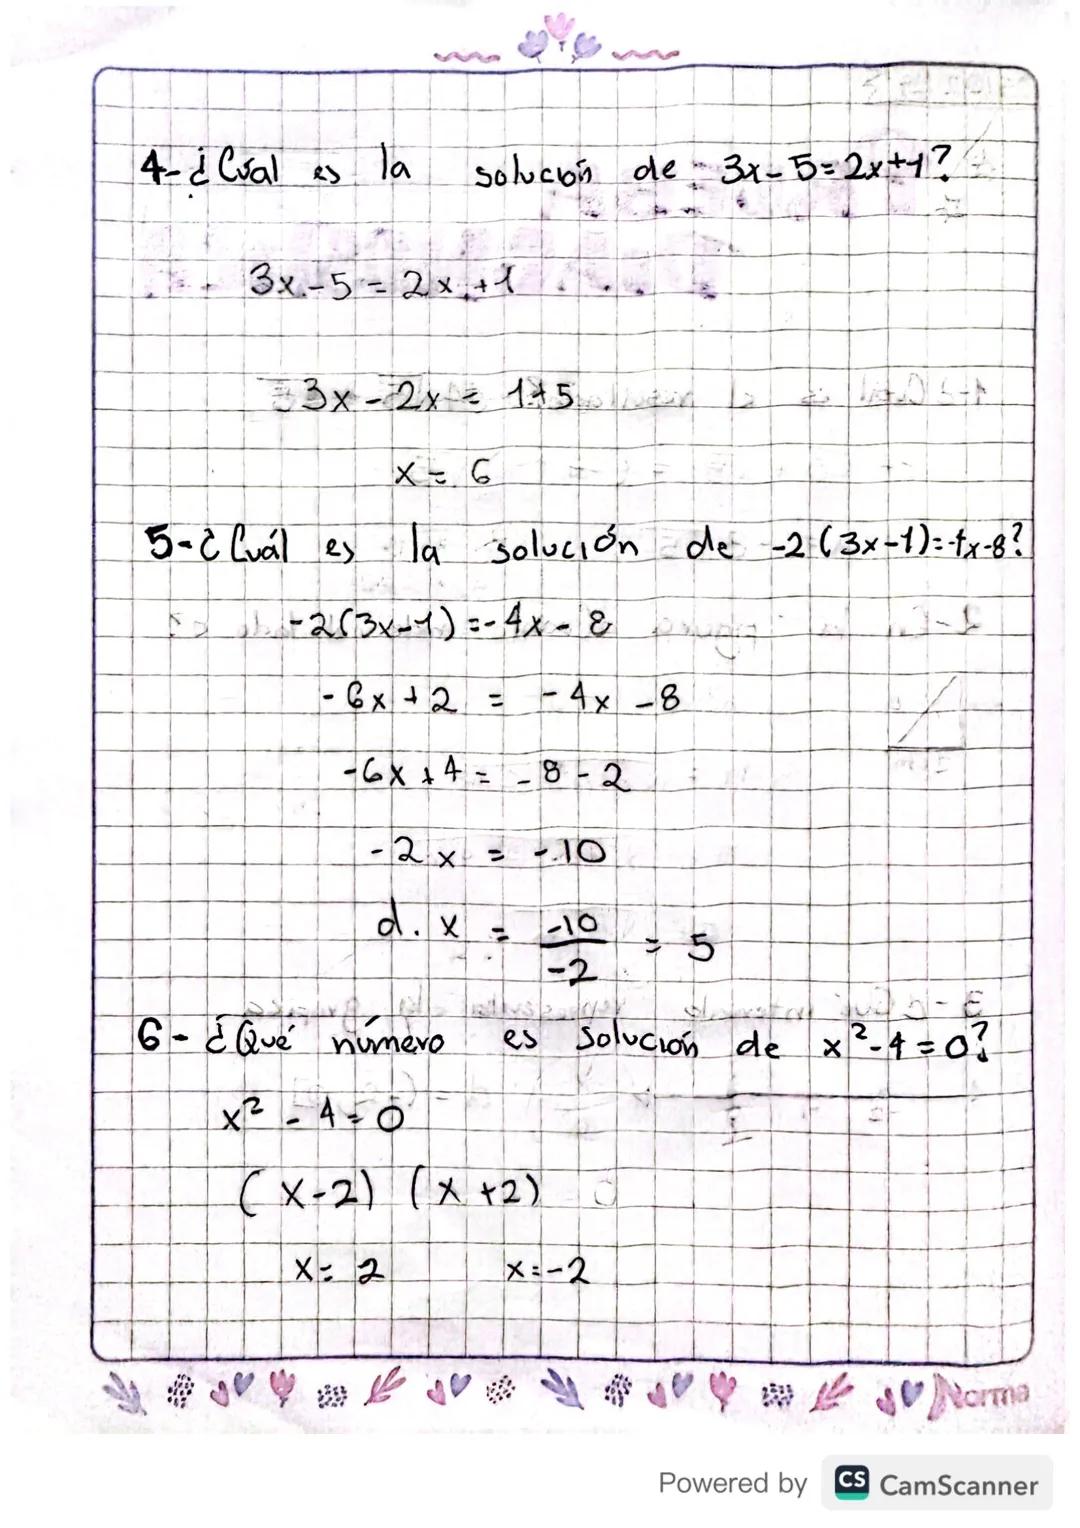 4-¿Cuál es la solución de 3x-5=2x+1?
3x-5=2x+1
3x-2x=1+5
x=6
5-¿Cuál es la solución de -2(3x-1)=-4x-8?
-2(3x-1)=-4x-8
-6x+2 = -4x-8
-6x+4=-8-2
-2x = -10
d. x = -10/-2 = 5
6-¿Qué número es solución de x²-4=0?
x²-4=0
(x-2) (x+2)
x=2 x=-2
Norma
Powered by CS CamScanner